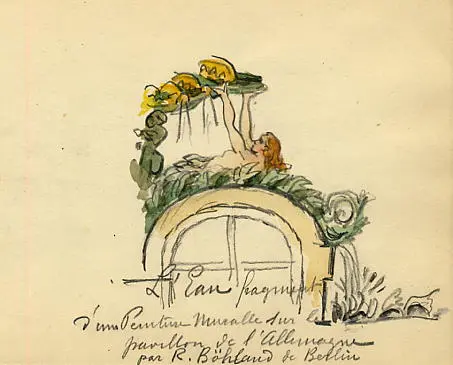 L'Eau fragment
d'une Peinture Muralle sur le
pavillon de l'Allemagne
par R. Böhland de Berlin